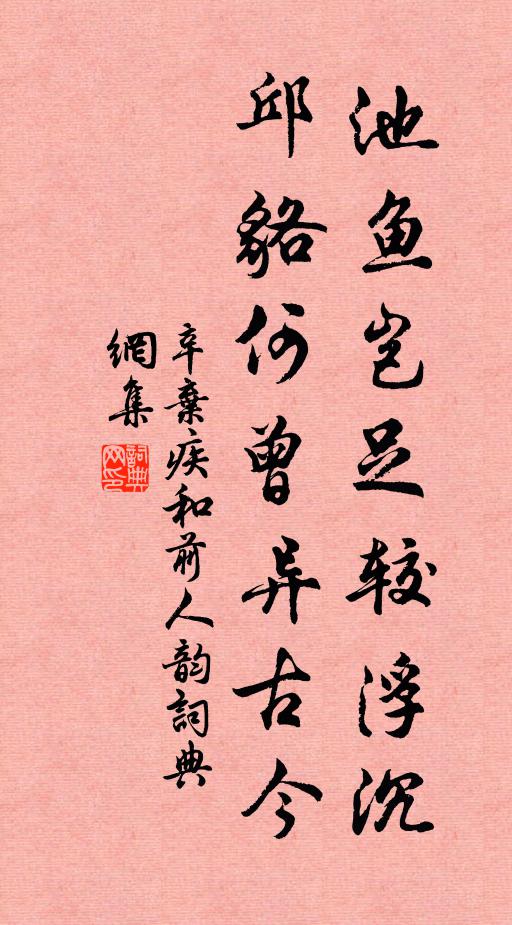 池鱼岂足较浮沉
邱貉何曾异古今
辛棄疾和前人韵詞典
網集
詞典
网印